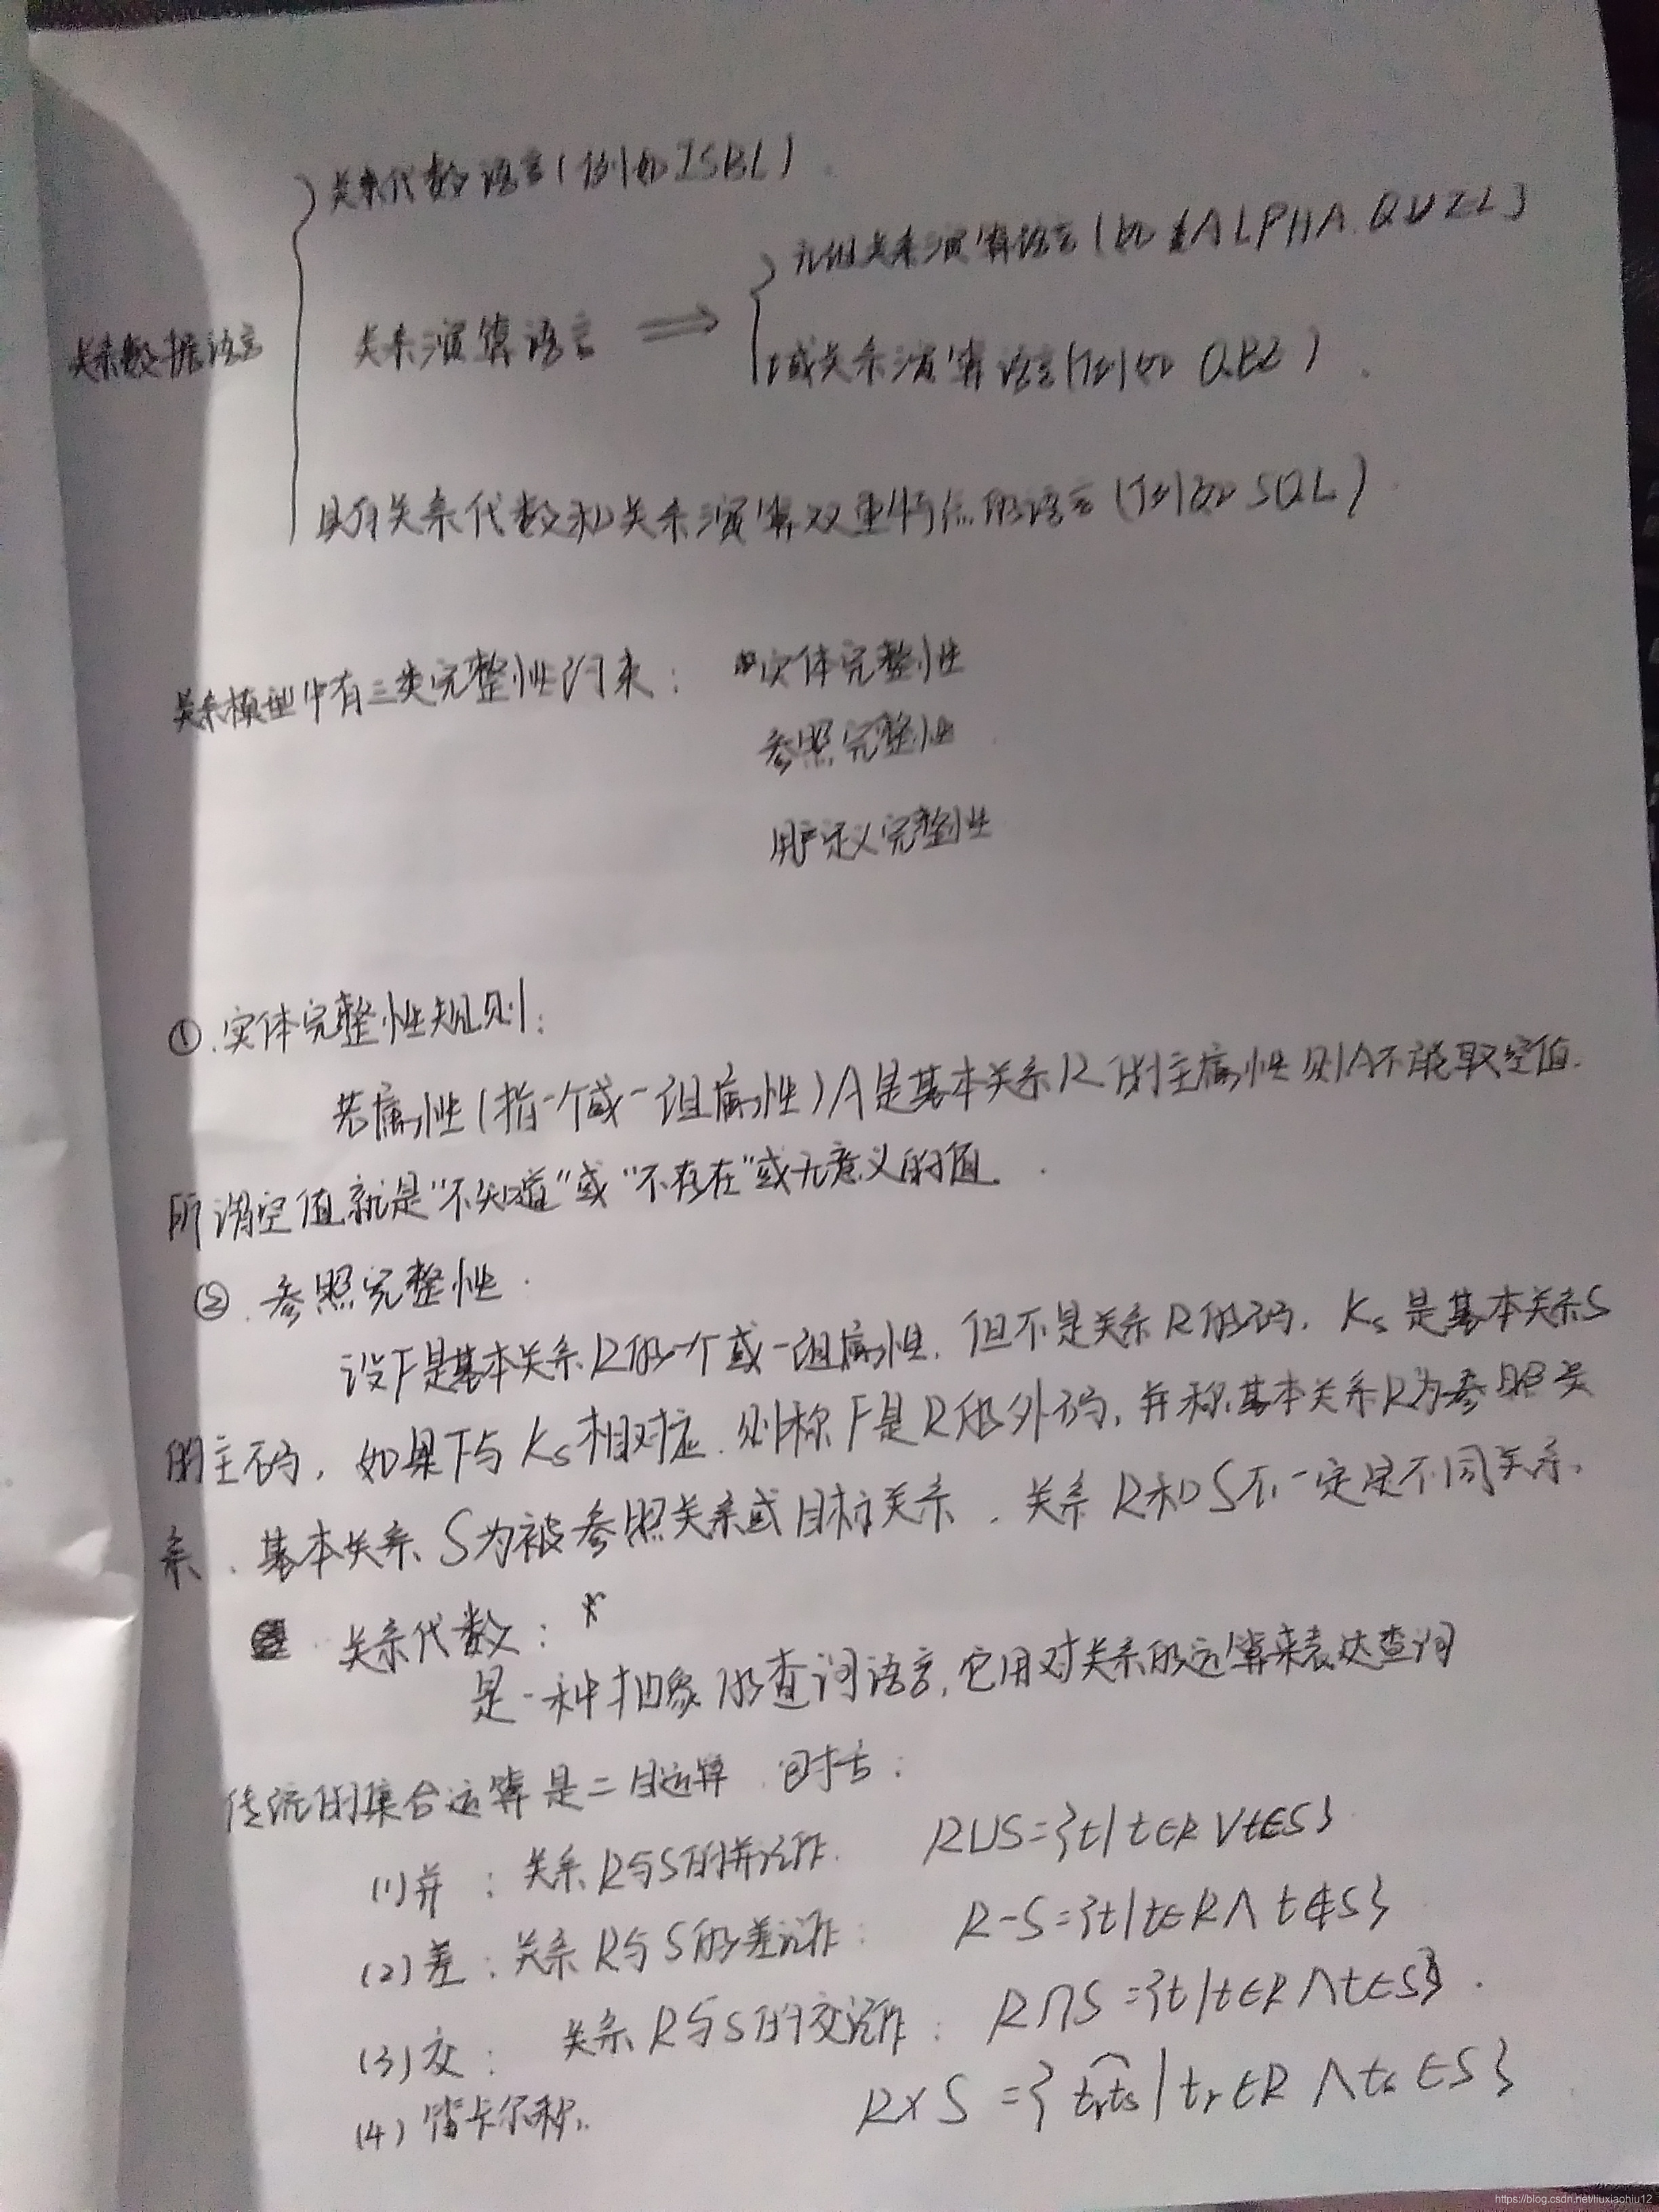 关系代数语言(例如ISBL)
元组关系演算语言(如ALPHA.QUEL)
关系数据语言
关系演算语言 ⇒
域关系演算语言(例如QBE)
具有关系代数和关系演算双重特点的语言(例如SQL)
关系模型中有三类完整性约束: 实体完整性
参照完整性
用户定义完整性
①.实体完整性规则:
若属性(指一个或一组属性)A是基本关系R的主属性则A不能取空值.
所谓空值就是"不知道"或"不存在"或无意义的值.
②.参照完整性.
设F是基本关系R的一个或一组属性.但不是关系R的码.Ks是基本关系S
的主码,如果F与Ks相对应.则称F是R的外码,并称基本关系R为参照关
系.基本关系S为被参照关系或目标关系.关系R和S不一定是不同关系.
关系代数:*
是一种抽象的查询语言,它用对关系的运算来表达查询
传统的集合运算是二目运算.包括:
(1)并:关系R与S的并记作. R∪S={t|t∈R∨t∈S}.
(2)差:关系R与S的差记作: R-S={t|t∈R∧t∉S}
(3)交:关系R与S的交记作: R∩S={t|t∈R∧t∈S}.
(4)笛卡尔积. R×S={t͡rts|tr∈R∧ts∈S}
https://blog.csdn.net/liuxiaohiu12